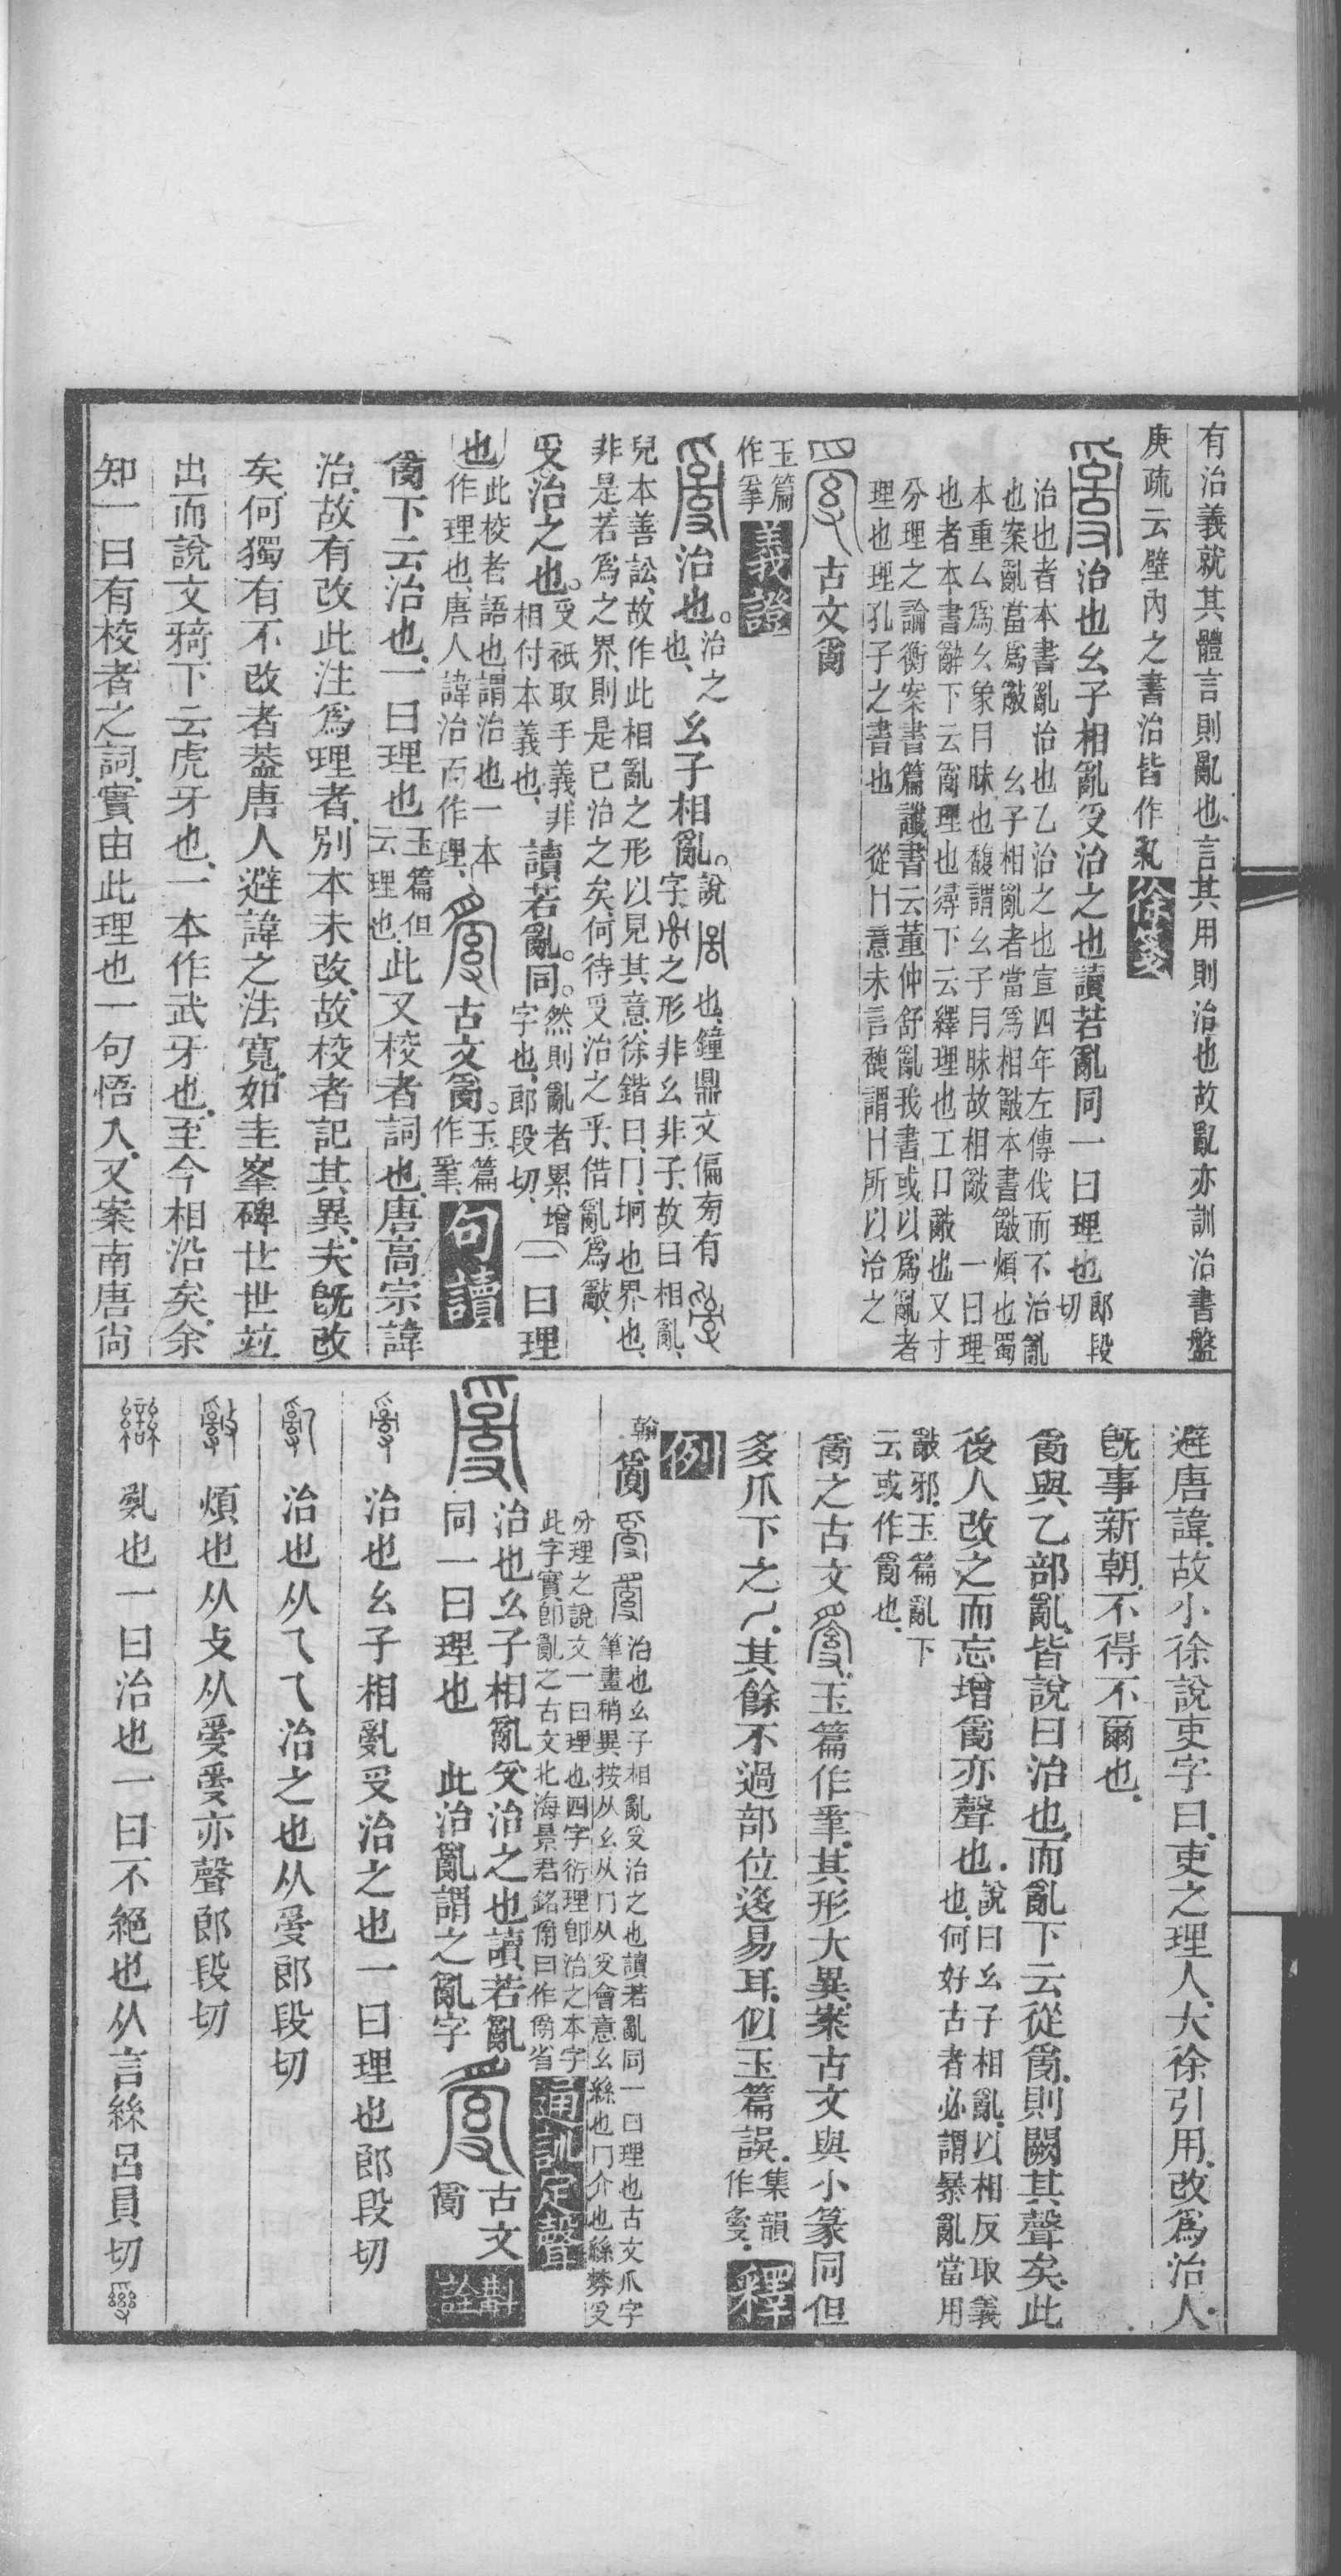 有治義就其體言則亂也言其用則治也故亂亦訓治書盤
庚疏云壁內之書治皆作乿徐箋
治也幺子相亂𠬪治之也讀若亂同一曰理也郎段切
治也者本書亂治也乙治之也宣四年左傳伐而不治亂
也案亂當爲敽 幺子相亂者當爲相敽本書敽煩也蜀
本重厶爲幺象目昧也馥謂幺子目昧故相敽 一曰理
也者本書辭下云𤔔理也𢒫下云繹理也工口敽也又寸
分理之論衡案書篇讖書云董仲舒亂我書或以爲亂者
理也理孔子之書也 從H意未言馥謂H所以治之
古文𤔔
玉篇作𤔌義證
治也。治之也、幺子相亂。說
字也、鐘鼎文偏旁有
之形非幺非子、故曰相亂、
兒本善訟、故作此相亂之形以見其意、徐鍇曰、冂、坰也界也、
非是、若爲之界、則是已治之矣、何待𠬪治之乎、借亂爲敽、
𠬪治之也。𠬪祇取手義、非相付本義也、讀若亂。同。然則亂者累增字也、郎段切、一曰理
也此校者語也謂治也一本作理也、唐人諱治而作理、古文𤔔。玉篇作𤔌、句讀
𤔔下云治也、一曰理也玉篇但云理也、此又校者詞也、唐高宗諱
治、故有改此注爲理者、別本未改、故校者記其異、夫旣改
矣、何獨有不改者、葢唐人避諱之法寬、如圭峯碑世世竝
出、而說文犄下云虎牙也、一本作武牙也、至今相沿矣、余
知一曰有校者之詞、實由此理也一句悟入、又案南唐尙
避唐諱、故小徐說吏字曰、吏之理人、大徐引用、改爲治人、
旣事新朝、不得不爾也、
𤔔與乙部亂、皆說曰治也、而亂下云從𤔔、則闕其聲矣、此
後人改之而忘增𤔔亦聲也、說曰幺子相亂、以相反取義也、何好古者必謂暴亂當用
敽邪、玉篇亂下云或作𤔔也、
𤔔之古文、玉篇作𤔌、其形大異、案古文與小篆同、但
多爪下之乀、其餘不過部位迻易耳、似玉篇誤、集韻作、釋
例
𤔔
治也幺子相亂𠬪治之也讀若亂同一曰理也古文爪字
筆畫稍異按从幺从冂从𠬪會意幺絲也冂介也絲棼𠬪
分理之說文一曰理也四字衍理卽治之本字
此字實卽亂之古文北海景君銘𤔔曰作𤔔省通訓定聲
治也幺子相亂𠬪治之也讀若亂
同一曰理也 此治亂謂之亂字古文𤔔斠詮
治也幺子相亂𠬪治之也一曰理也郎段切
治也从乀乀治之也从𤔔郎段切
煩也从攴从𤔔𤔔亦聲郎段切
亂也一曰治也一曰不絕也从言絲呂員切